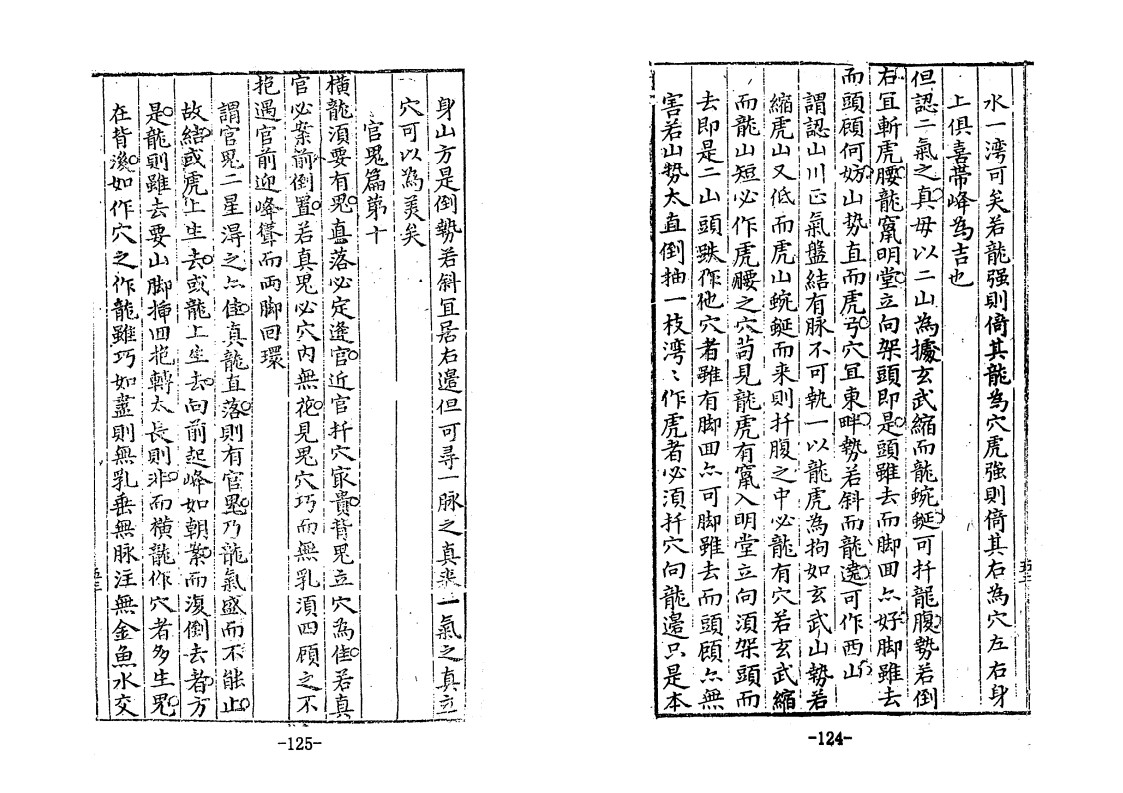 水一湾可矣若龍强則倚其龍為穴虎强則倚其右為穴左右身
上俱喜帯峰為吉也
但認二氣之真毋以二山為據玄武縮而龍蜿蜒可扦龍腹勢若倒
右冝斬虎腰龍竄明堂立向架頭即是頭雖去而脚回亽好脚雖去
而頭顧何妨山勢直而虎弓穴冝東畔勢若斜而龍遶可作西山
謂認山川正氣盤結有脉不可執一以龍虎為拘如玄武山勢若
縮虎山又低而虎山蜿蜒而来則扦腹之中必龍有穴若玄武縮
而龍山短必作虎腰之穴苟見龍虎有竄入明堂立向須架頭而
去即是二山頭跌作他穴者雖有脚回亽可脚雖去而頭顧亽無
害若山勢太直倒抽一枝湾〻作虎者必須扦穴向龍邉只是本
五二
-124-
身山方是倒勢若斜冝居右邉但可尋一脉之真裴一氣之真立
穴可以為美矣
官鬼篇第十
橫龍須要有鬼真落必定逢官近官扦穴㝡貴背鬼立穴為佳若真
官必案前倒置若真鬼必穴内無花見鬼穴巧而無乳須四顧之不
抱遇官前迎峰聳而両脚回環
謂官鬼二星淂之亽佳真龍直落則有官鬼乃龍氣盛而不能止
故結或虎上生去或龍上生去向前起峰如朝案而復倒去者方
是龍則雖去要山脚揷回抱轉太長則非而橫龍作穴者多生鬼
在背後如作穴之作龍雖巧如畫則無乳垂無脉注無金魚水交
五三
-125-